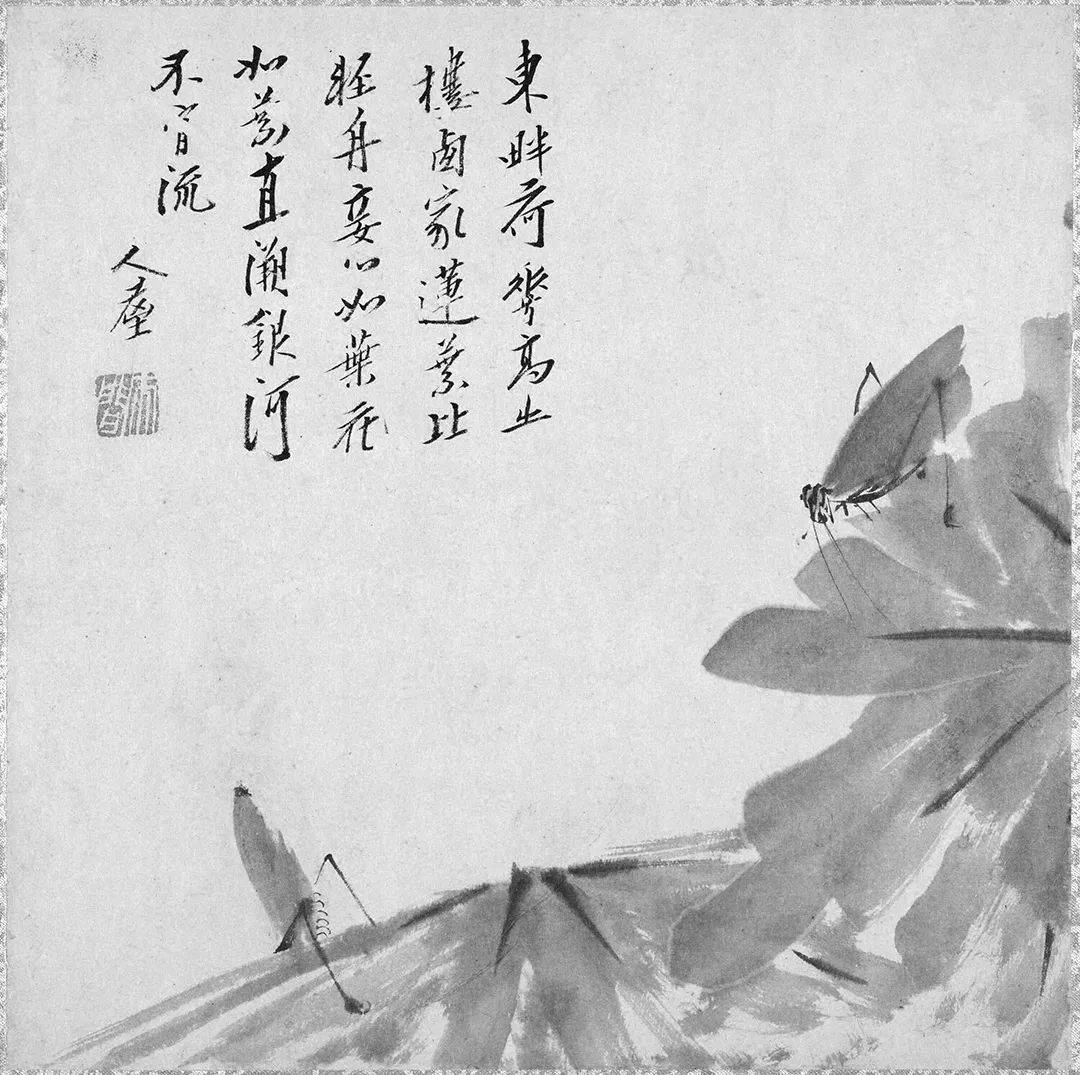 東畔荷華高出
樓西家蓮葉比
輕舟妾心如葉花
如葉直溯銀河
不肯流
人